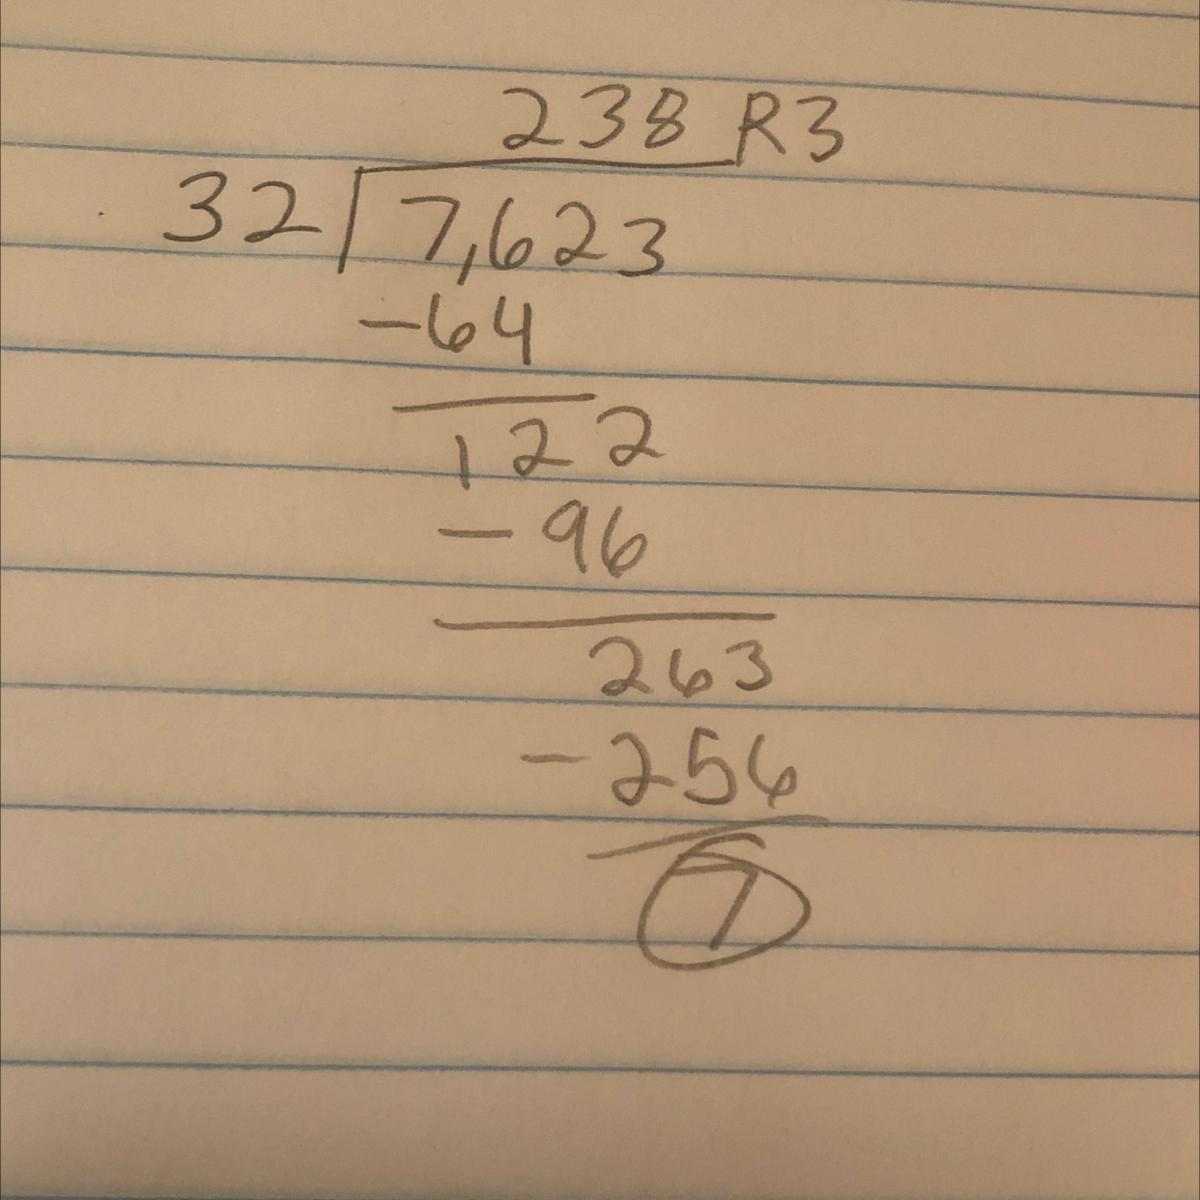 238 R3
32 7,623
-64
122
-96
263
-256
7